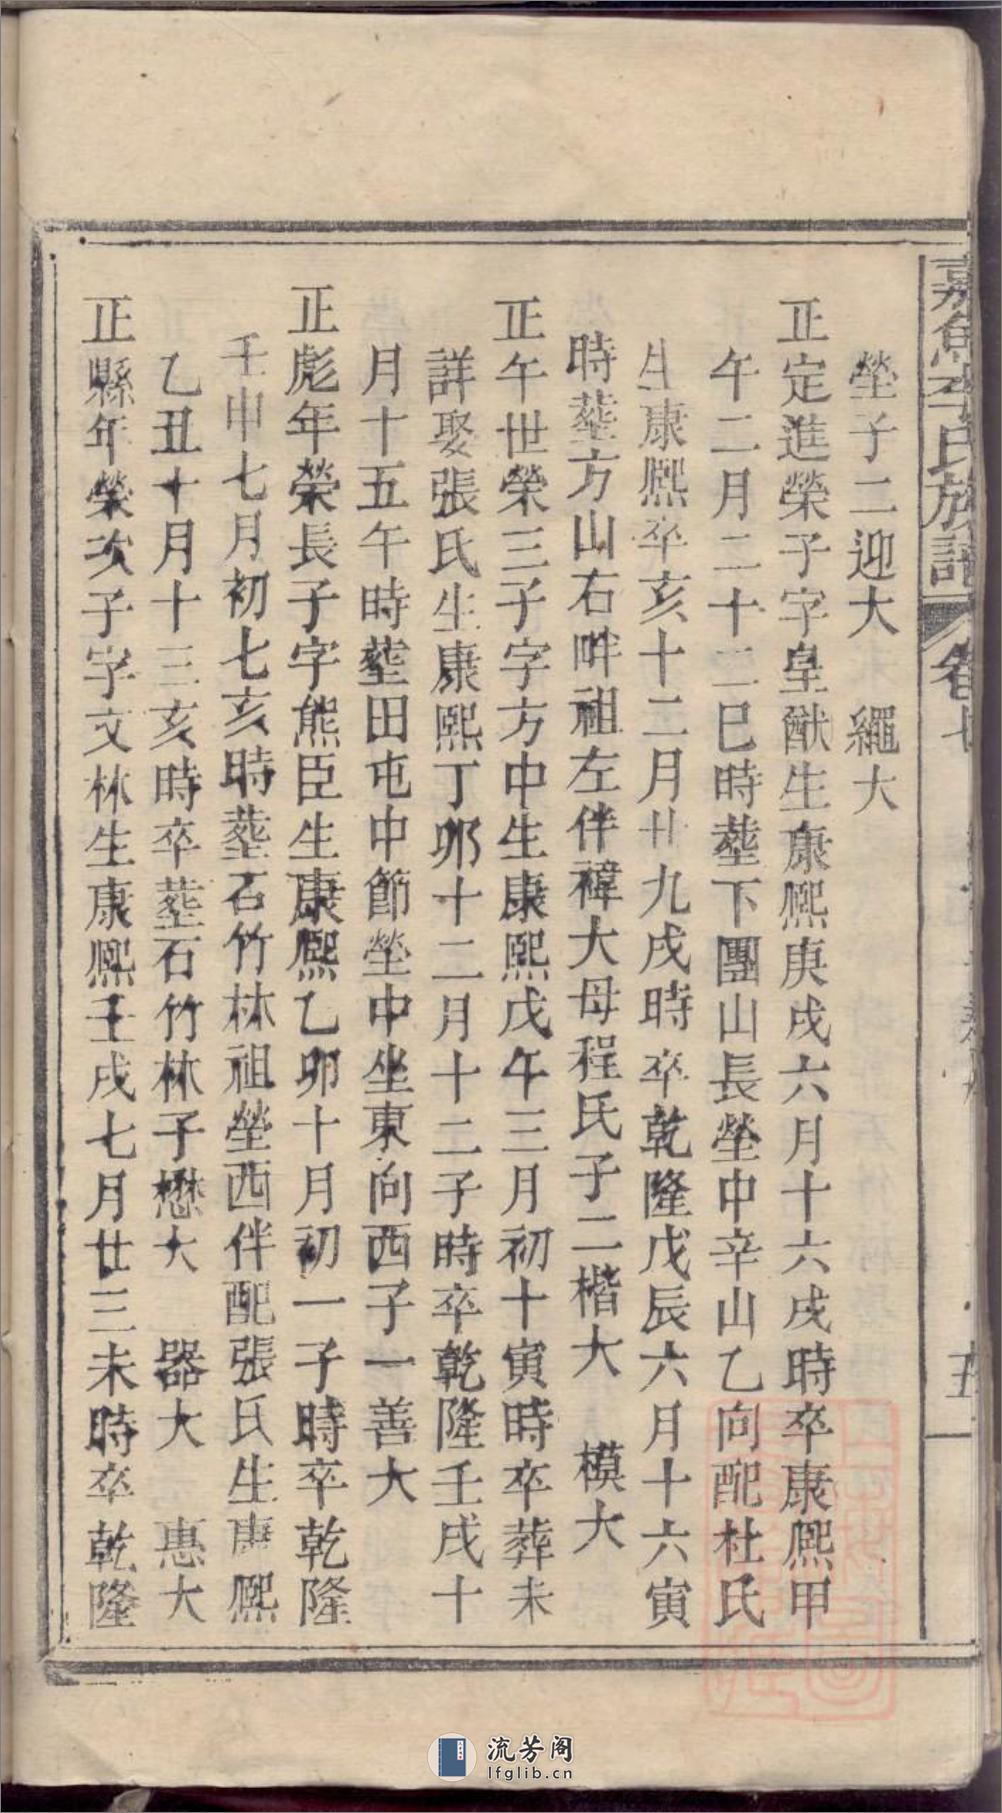 嘉魚李氏族譜 卷七 五
塋子二迎大 繩大
正定進榮子字皇猷生康熙庚戌六月十六戌時卒康熙甲
午二月二十二巳時塟下團山長塋中辛山乙向配杜氏
生康熙辛亥十二月廿九戌時卒乾隆戊辰六月十六寅
時塟方山右畔祖左伴褘大母程氏子二楷大 模大
正午世榮三子字方中生康熙戊午三月初十寅時卒葬未
詳娶張氏生康熙丁卯十二月十二子時卒乾隆壬戌十
月十五午時塟田屯中節塋中坐東向西子一善大
正彪年榮長子字熊臣生康熙乙卯十月初一子時卒乾隆
壬申七月初七亥時塟石竹林祖塋西伴配張氏生康熙
乙丑十月十三亥時卒塟石竹林子懋大 器大 惠大
正縣年榮次子字文林生康熙壬戌七月廿三未時卒乾隆
流芳阁
lfglib.cn